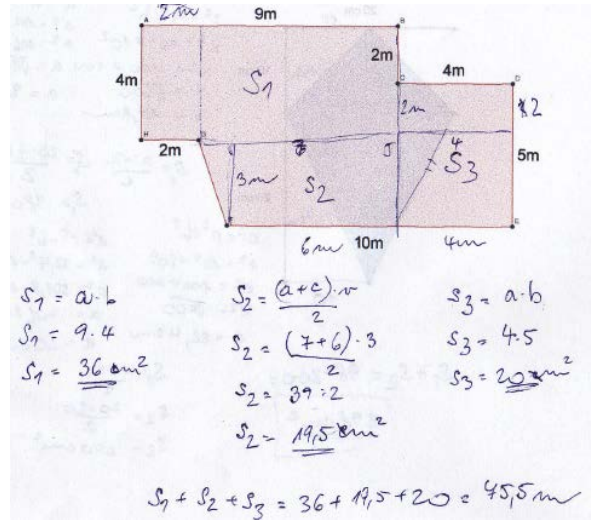 2m 9m
A B
2m
4m S1 C 4m D
2m 2
H 2m G J 4
3m S2 S3 5m
F E
6m 10m 4m
S1 = a·b
S1 = 9·4
S1 = 36 m²
S2 = (a+c)·v / 2
S2 = (7+6)·3 / 2
S2 = 39:2
S2 = 19,5 m²
S3 = a·b
S3 = 4·5
S3 = 20 m²
S1 + S2 + S3 = 36 + 19,5 + 20 = 75,5 m